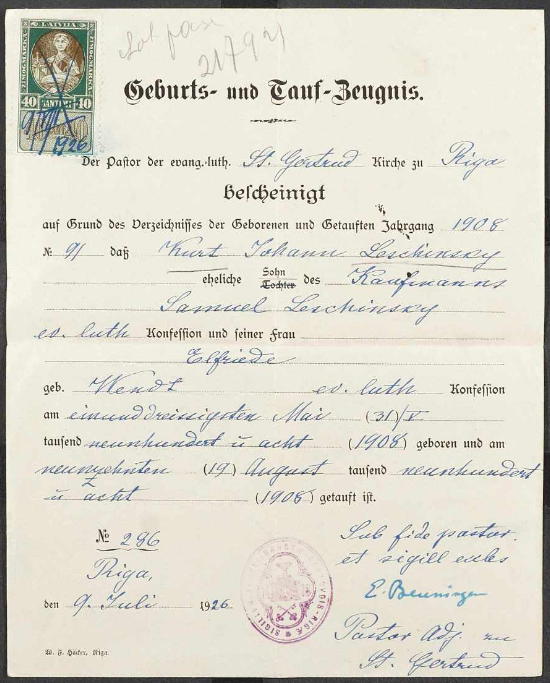 LATVIJA
40 SANTIMI 40
9/VII 1926
217921
Geburts- und Tauf-Zeugnis.
Der Pastor der evang.-luth. St. Gertrud Kirche zu Riga
bescheinigt
auf Grund des Verzeichnisses der Geborenen und Getauften Jahrgang 1908
№ 91 daß Kurt Johann Leschinsky
eheliche Sohn Tochter des Kaufmanns
Samuel Leschinsky
ev. luth Konfession und seiner Frau
Elfriede
geb. Wendt ev. luth Konfession
am einunddreissigsten Mai (31/V
tausend neunhundert u acht (1908) geboren und am
neunzehnten (19) August tausend neunhundert
u acht (1908) getauft ist.
№ 286
Riga,
den 9. Juli 1926
Sub fide pastor.
et sigill
Pastor Adj. zu
St. Gertrud
W. F. Häcker, Riga.